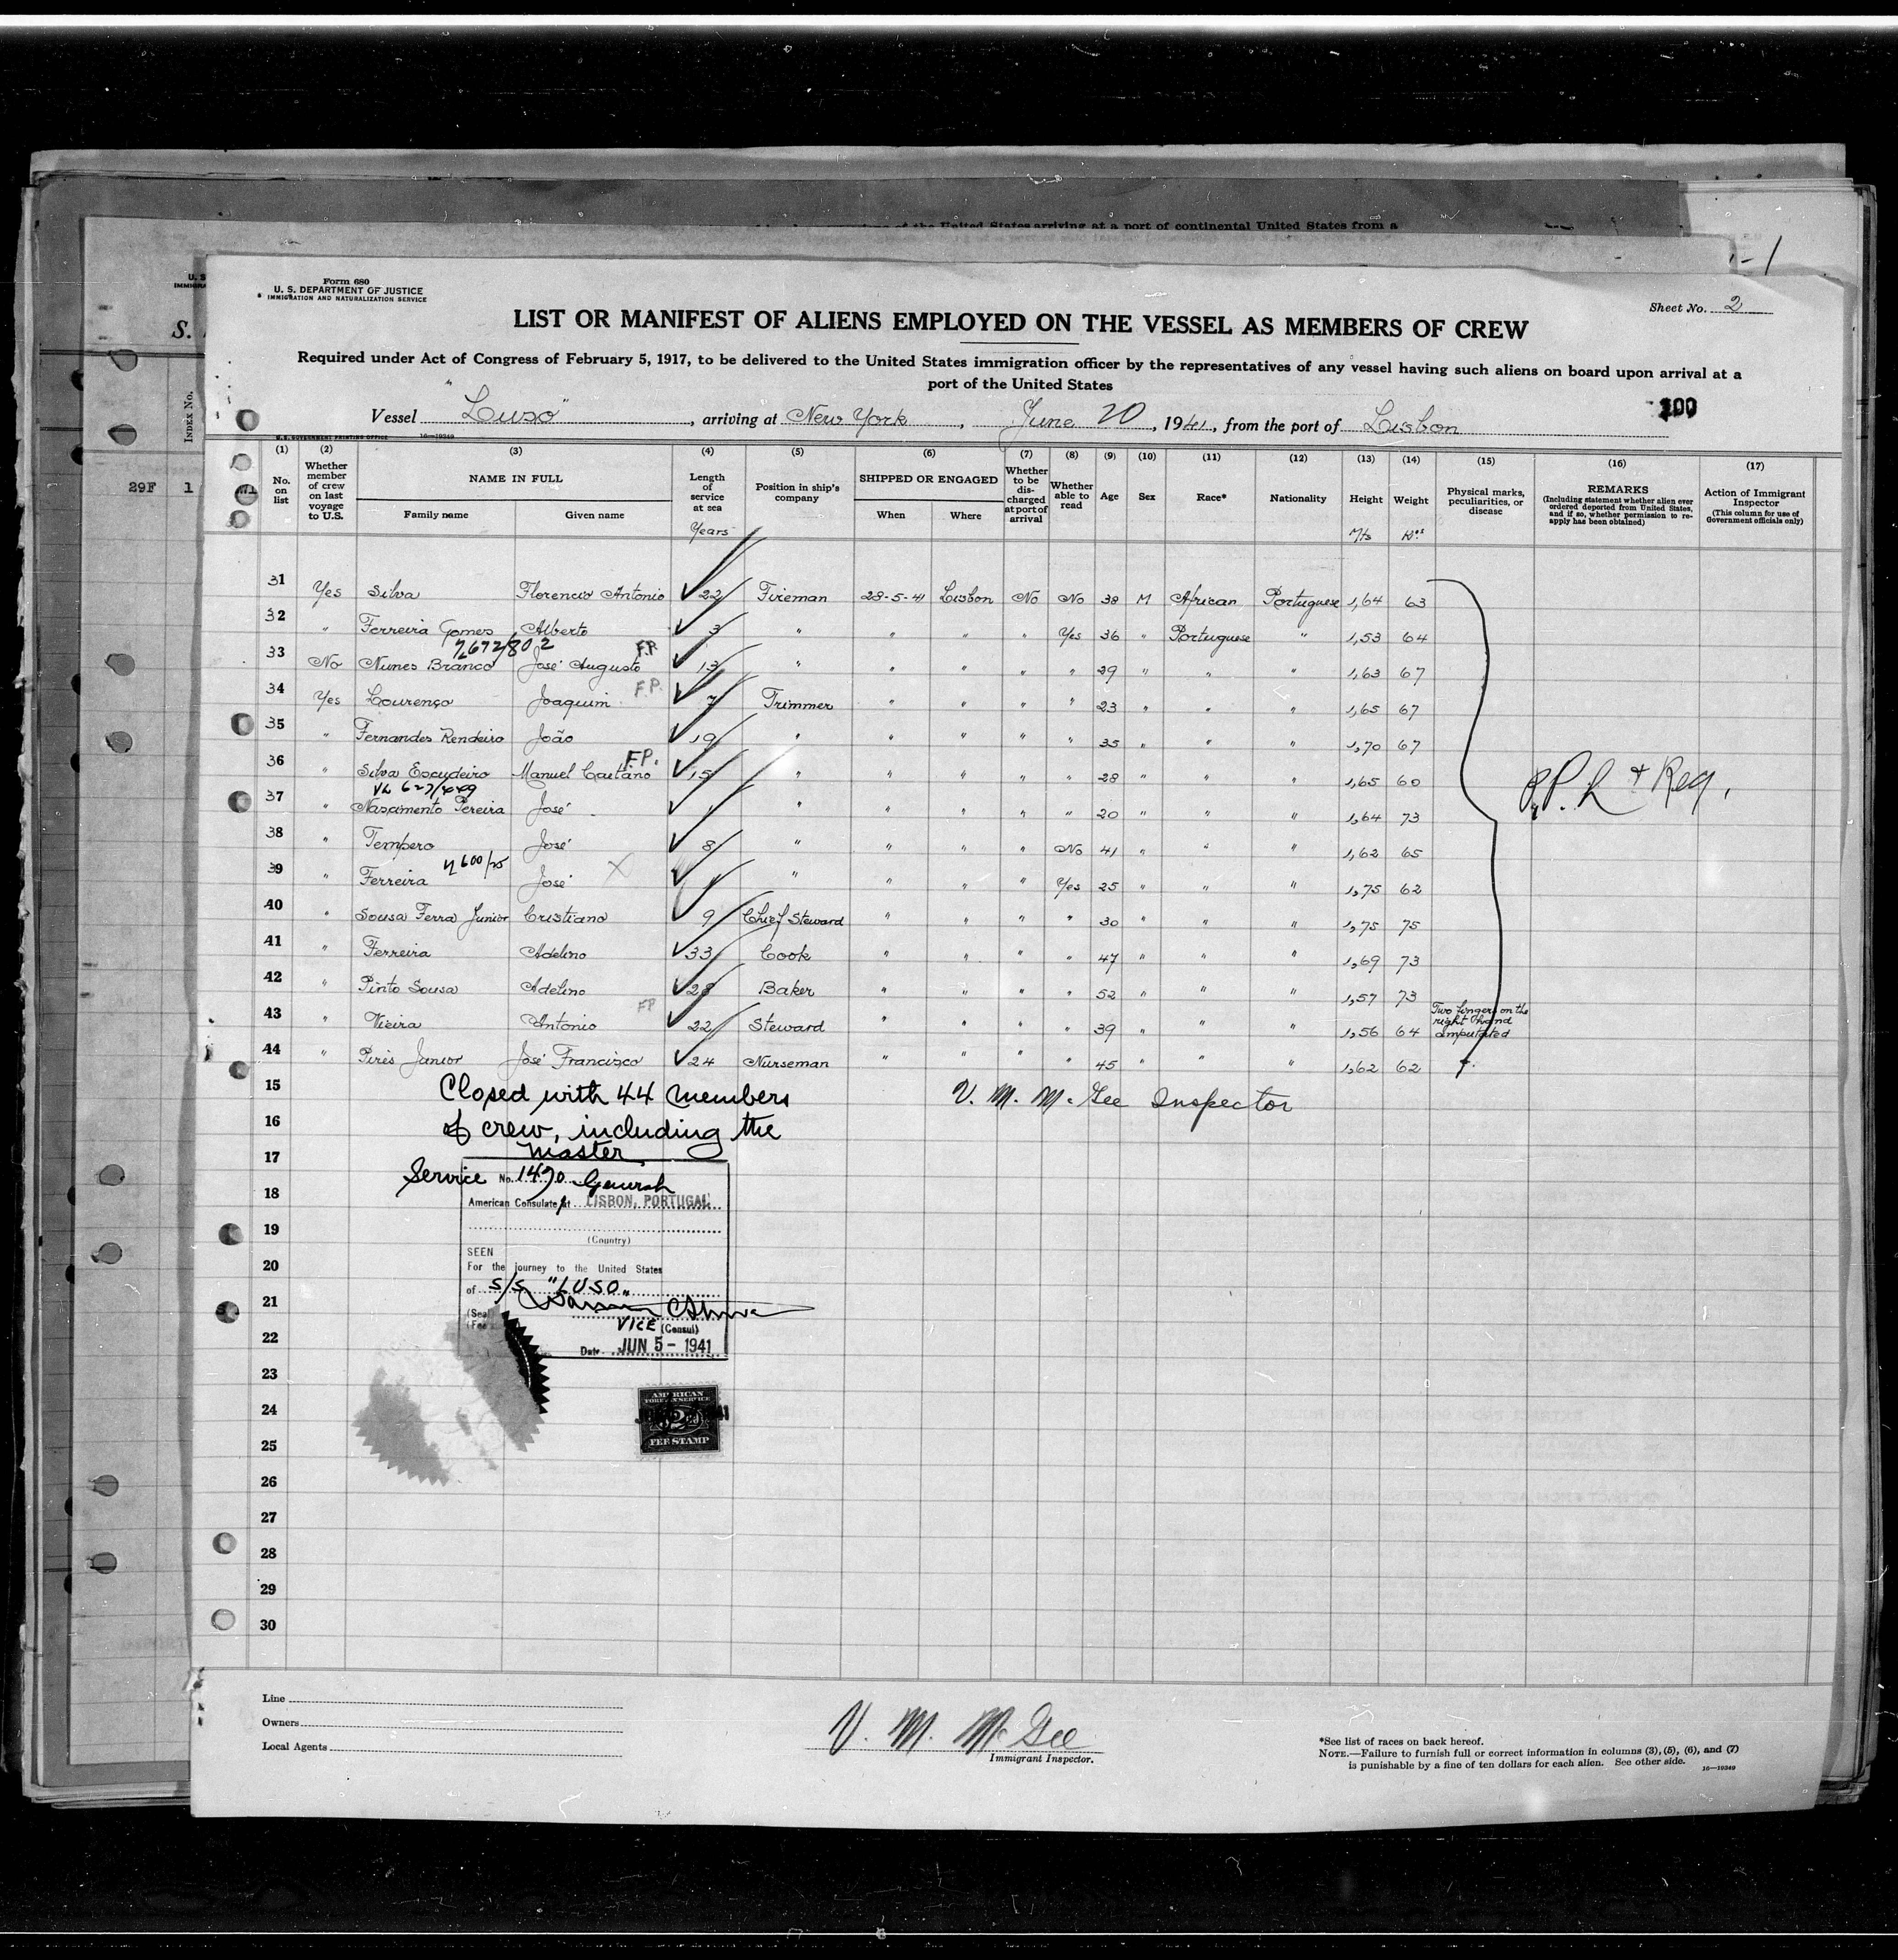 of the United States arriving at a port of continental United States from a
- 1
Form 680
U. S. DEPARTMENT OF JUSTICE
IMMIGRATION AND NATURALIZATION SERVICE
Sheet No. 2
LIST OR MANIFEST OF ALIENS EMPLOYED ON THE VESSEL AS MEMBERS OF CREW
Required under Act of Congress of February 5, 1917, to be delivered to the United States immigration officer by the representatives of any vessel having such aliens on board upon arrival at a
port of the United States
Vessel "Luso", arriving at New York, June 20, 1941, from the port of Lisbon
100
U.S. GOVERNMENT PRINTING OFFICE 16—19349
(1) (2) (3) (4) (5) (6) (7) (8) (9) (10) (11) (12) (13) (14) (15) (16) (17)
No. on list
Whether member of crew on last voyage to U.S.
NAME IN FULL
Family name Given name
Length of service at sea
Years
Position in ship's company
SHIPPED OR ENGAGED
When Where
Whether to be discharged at port of arrival
Whether able to read
Age Sex Race* Nationality
Height Mts
Weight Kos
Physical marks, peculiarities, or disease
REMARKS
(Including statement whether alien ever ordered deported from United States, and if so, whether permission to reapply has been obtained)
Action of Immigrant Inspector
(This column for use of Government officials only)
INDEX No.
29F 1
31 Yes Silva Florencio Antonio 22 Fireman 28-5-41 Lisbon No No 38 M African Portuguese 1,64 63
32 " Ferreira Gomes Alberto 3 " " " " Yes 36 " Portuguese " 1,53 64
33 No Nunes Branco José Augusto F.P. 13 " " " " " 29 " " " 1,63 67
34 Yes Lourenço Joaquim F.P. 7 Trimmer " " " " 23 " " " 1,65 67
35 " Fernandes Rendeiro João 19 " " " " " 35 " " " 1,70 67
36 " Silva Escudeiro Manuel Caetano F.P. 15 " " " " " 28 " " " 1,65 60
37 " Nascimento Pereira José 1 " " " " " 20 " " " 1,64 73
38 " Tempero José 8 " " " " No 41 " " " 1,62 65
39 " Ferreira José X 1 " " " " Yes 25 " " " 1,75 62
40 " Sousa Ferra Junior Cristiano 9 Chief Steward " " " " 30 " " " 1,75 75
41 " Ferreira Adelino 33 Cook " " " " 47 " " " 1,69 73
42 " Pinto Sousa Adelino 28 Baker " " " " 52 " " " 1,57 73
43 " Vieira Antonio F.P. 22 Steward " " " " 39 " " " 1,56 64 Two fingers on the right hand amputated
44 " Pires Junior José Francisco 24 Nurseman " " " " 45 " " " 1,62 62
15 Closed with 44 members
V. M. McGee Inspector
16 of crew, including the
17 Master
Service No. 1490
18
American Consulate at LISBON, PORTUGAL
19
(Country)
SEEN
20 For the journey to the United States
of S/S "LUSO"
21
(Seal)
VICE (Consul)
22
Date JUN 5 - 1941
23
24
AMERICAN FOREIGN SERVICE
$2
FEE STAMP
25
26
27
28
29
30
Line
Owners
Local Agents
V. M. McGee
Immigrant Inspector.
*See list of races on back hereof.
NOTE.—Failure to furnish full or correct information in columns (3), (5), (6), and (7)
is punishable by a fine of ten dollars for each alien. See other side. 16—19349